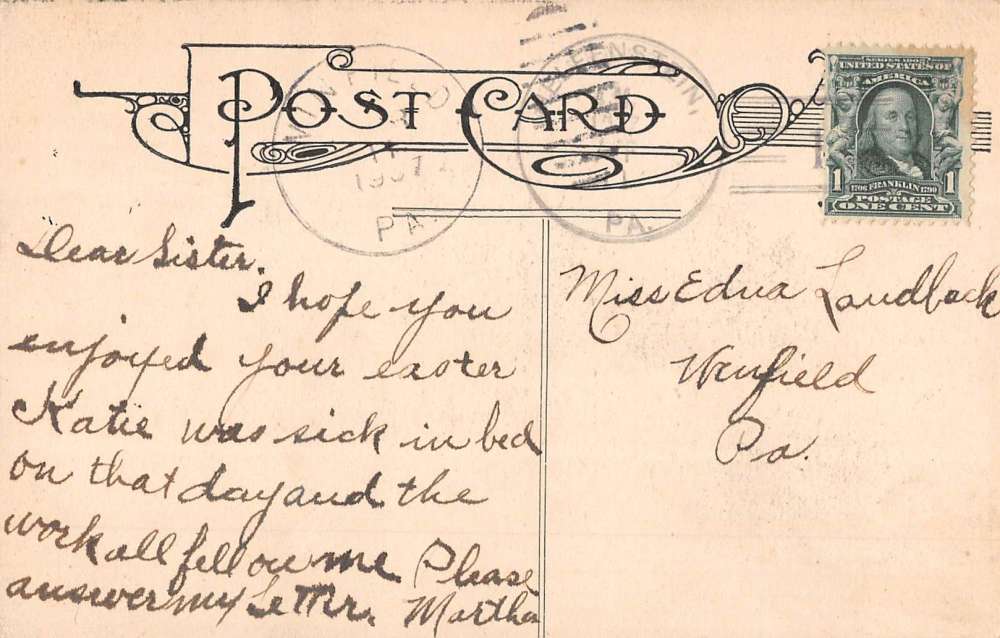 POST CARD
WINFIELD
1907
PA.
PA.
SERIES 1902
UNITED STATES OF
AMERICA
1 1
1706 FRANKLIN 1790
POSTAGE
ONE CENT
Dear Sister.
I hope you
enjoyed your easter
Katie was sick in bed
on that day and the
work all fell on me. Please
answer my Letter. Martha
Miss Edna Laudback
Winfield
Pa.